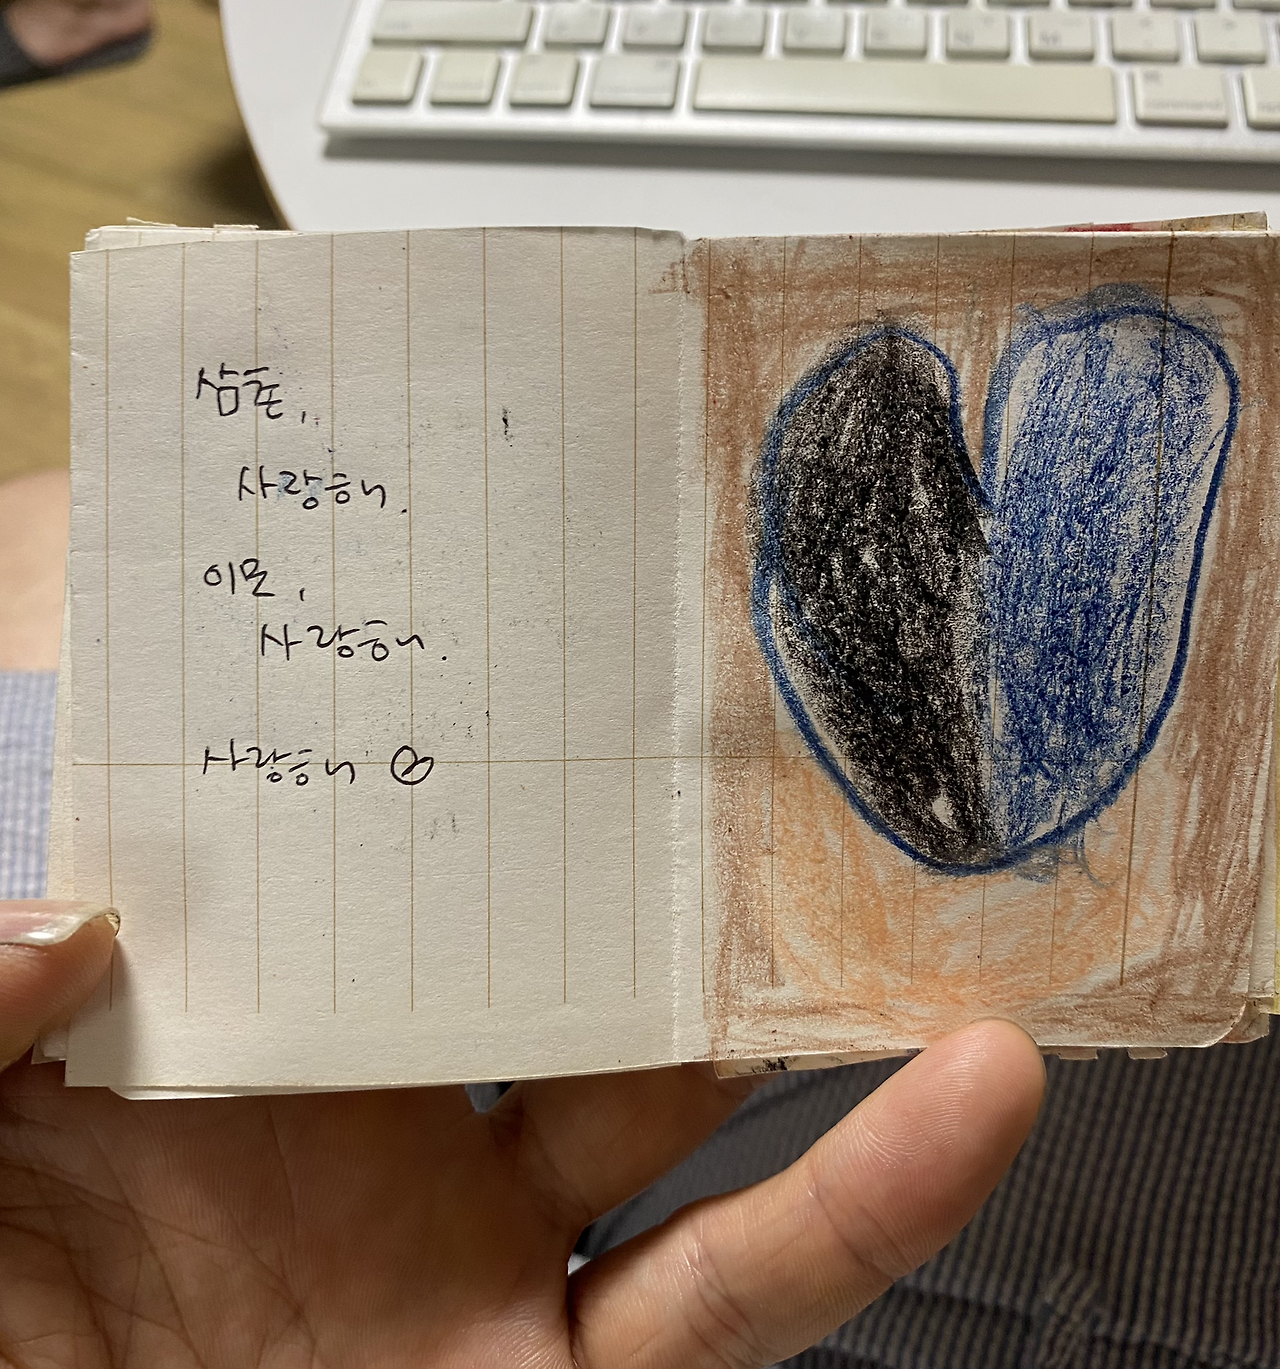 삼촌,
사랑해.
이모,
사랑해.
사랑해
command